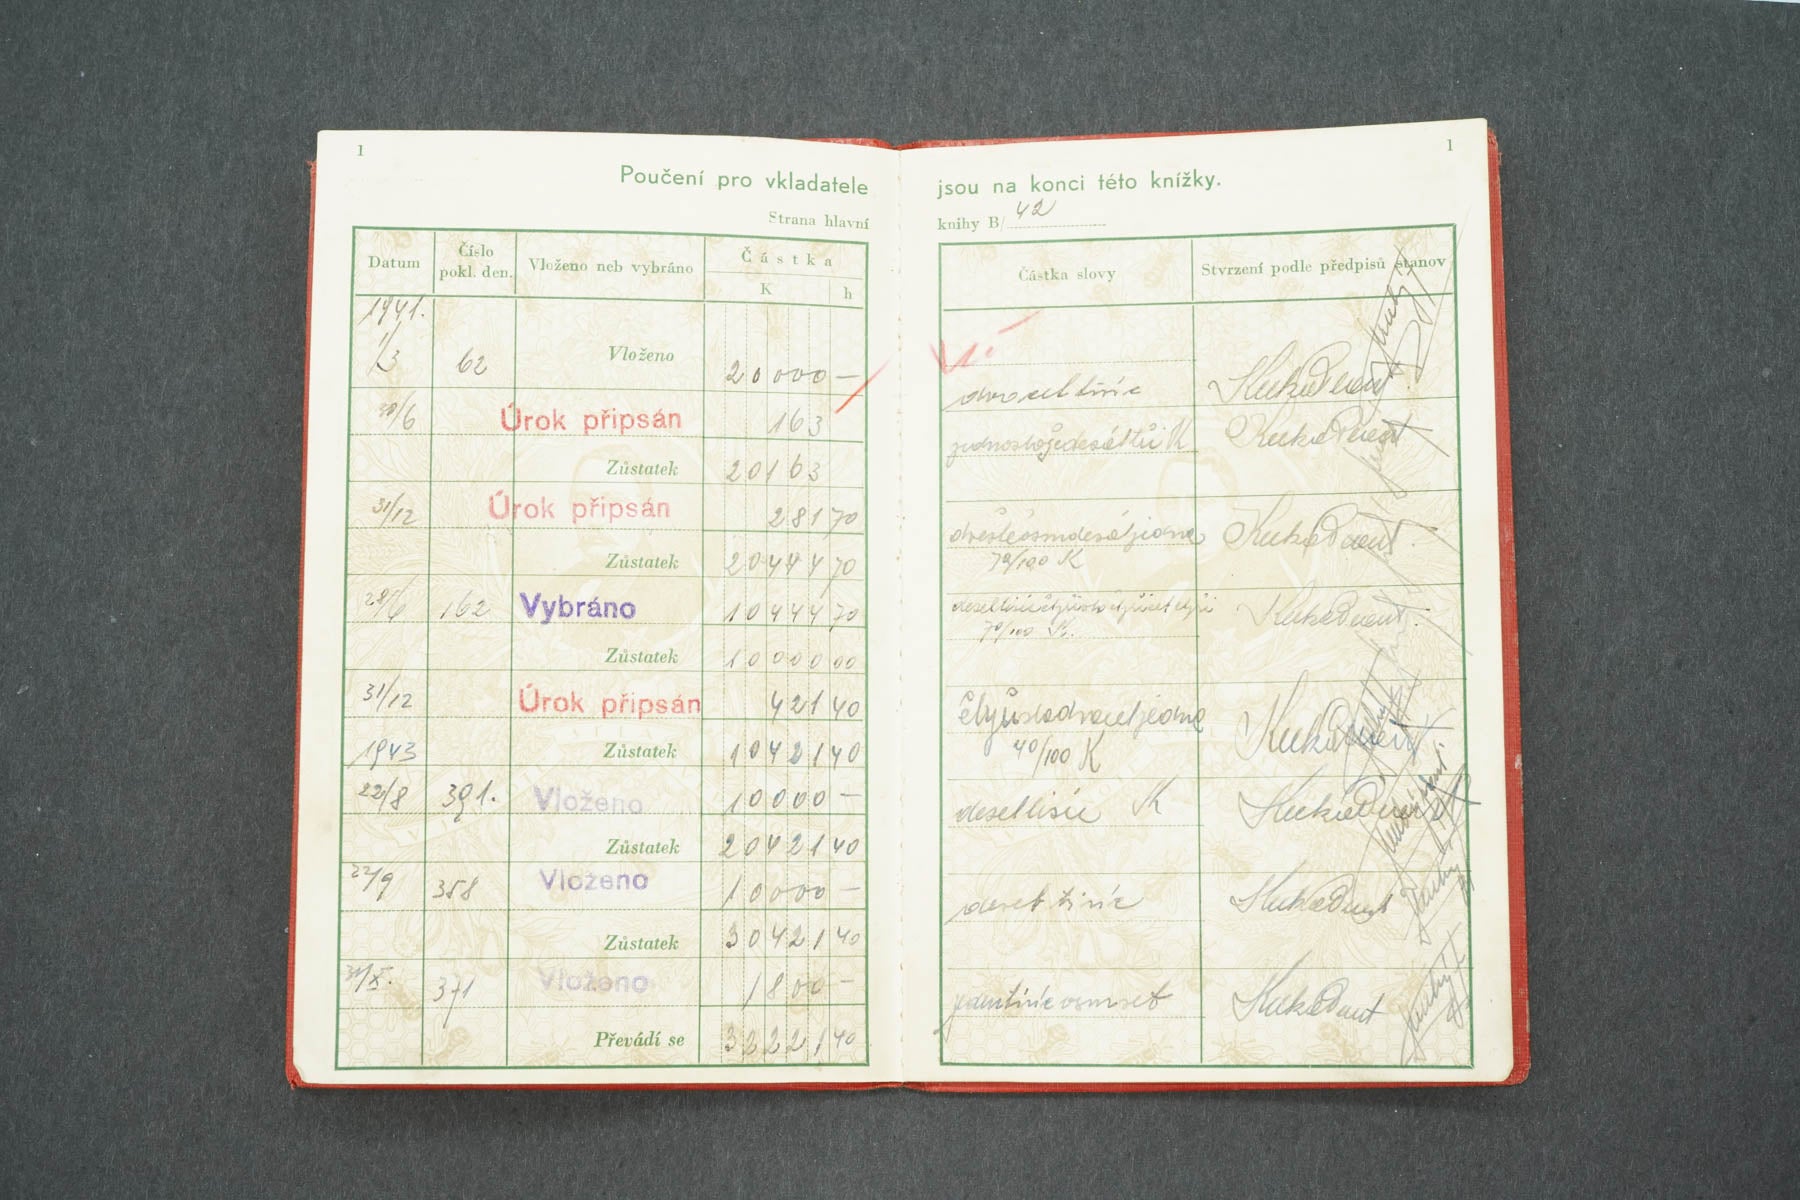 1
1
Poučení pro vkladatele jsou na konci této knížky.
Strana hlavní knihy B/ 42
Datum
Číslo pokl. den.
Vloženo neb vybráno
Částka
K
h
Částka slovy
Stvrzení podle předpisů stanov
1941.
1/3 62 Vloženo 20000 — dvacet tisíc
30/6 Úrok připsán 163
Zůstatek 20163
31/12 Úrok připsán 281 70 dvěstěosmdesátjedna
70/100 K
Zůstatek 20444 70
28/6 162 Vybráno 10444 70
70/100 K.
Zůstatek 10000 00
31/12 Úrok připsán 421 40 čtyřistadvacetjedna
40/100 K
Zůstatek 10421 40
1943
22/8 391. Vloženo 10000 — desettisíc K
Zůstatek 20421 40
22/9 358 Vloženo 10000 — deset tisíc
Zůstatek 30421 40
371 Vloženo 1800 — jedentisícosmset
Převádí se 32221 40